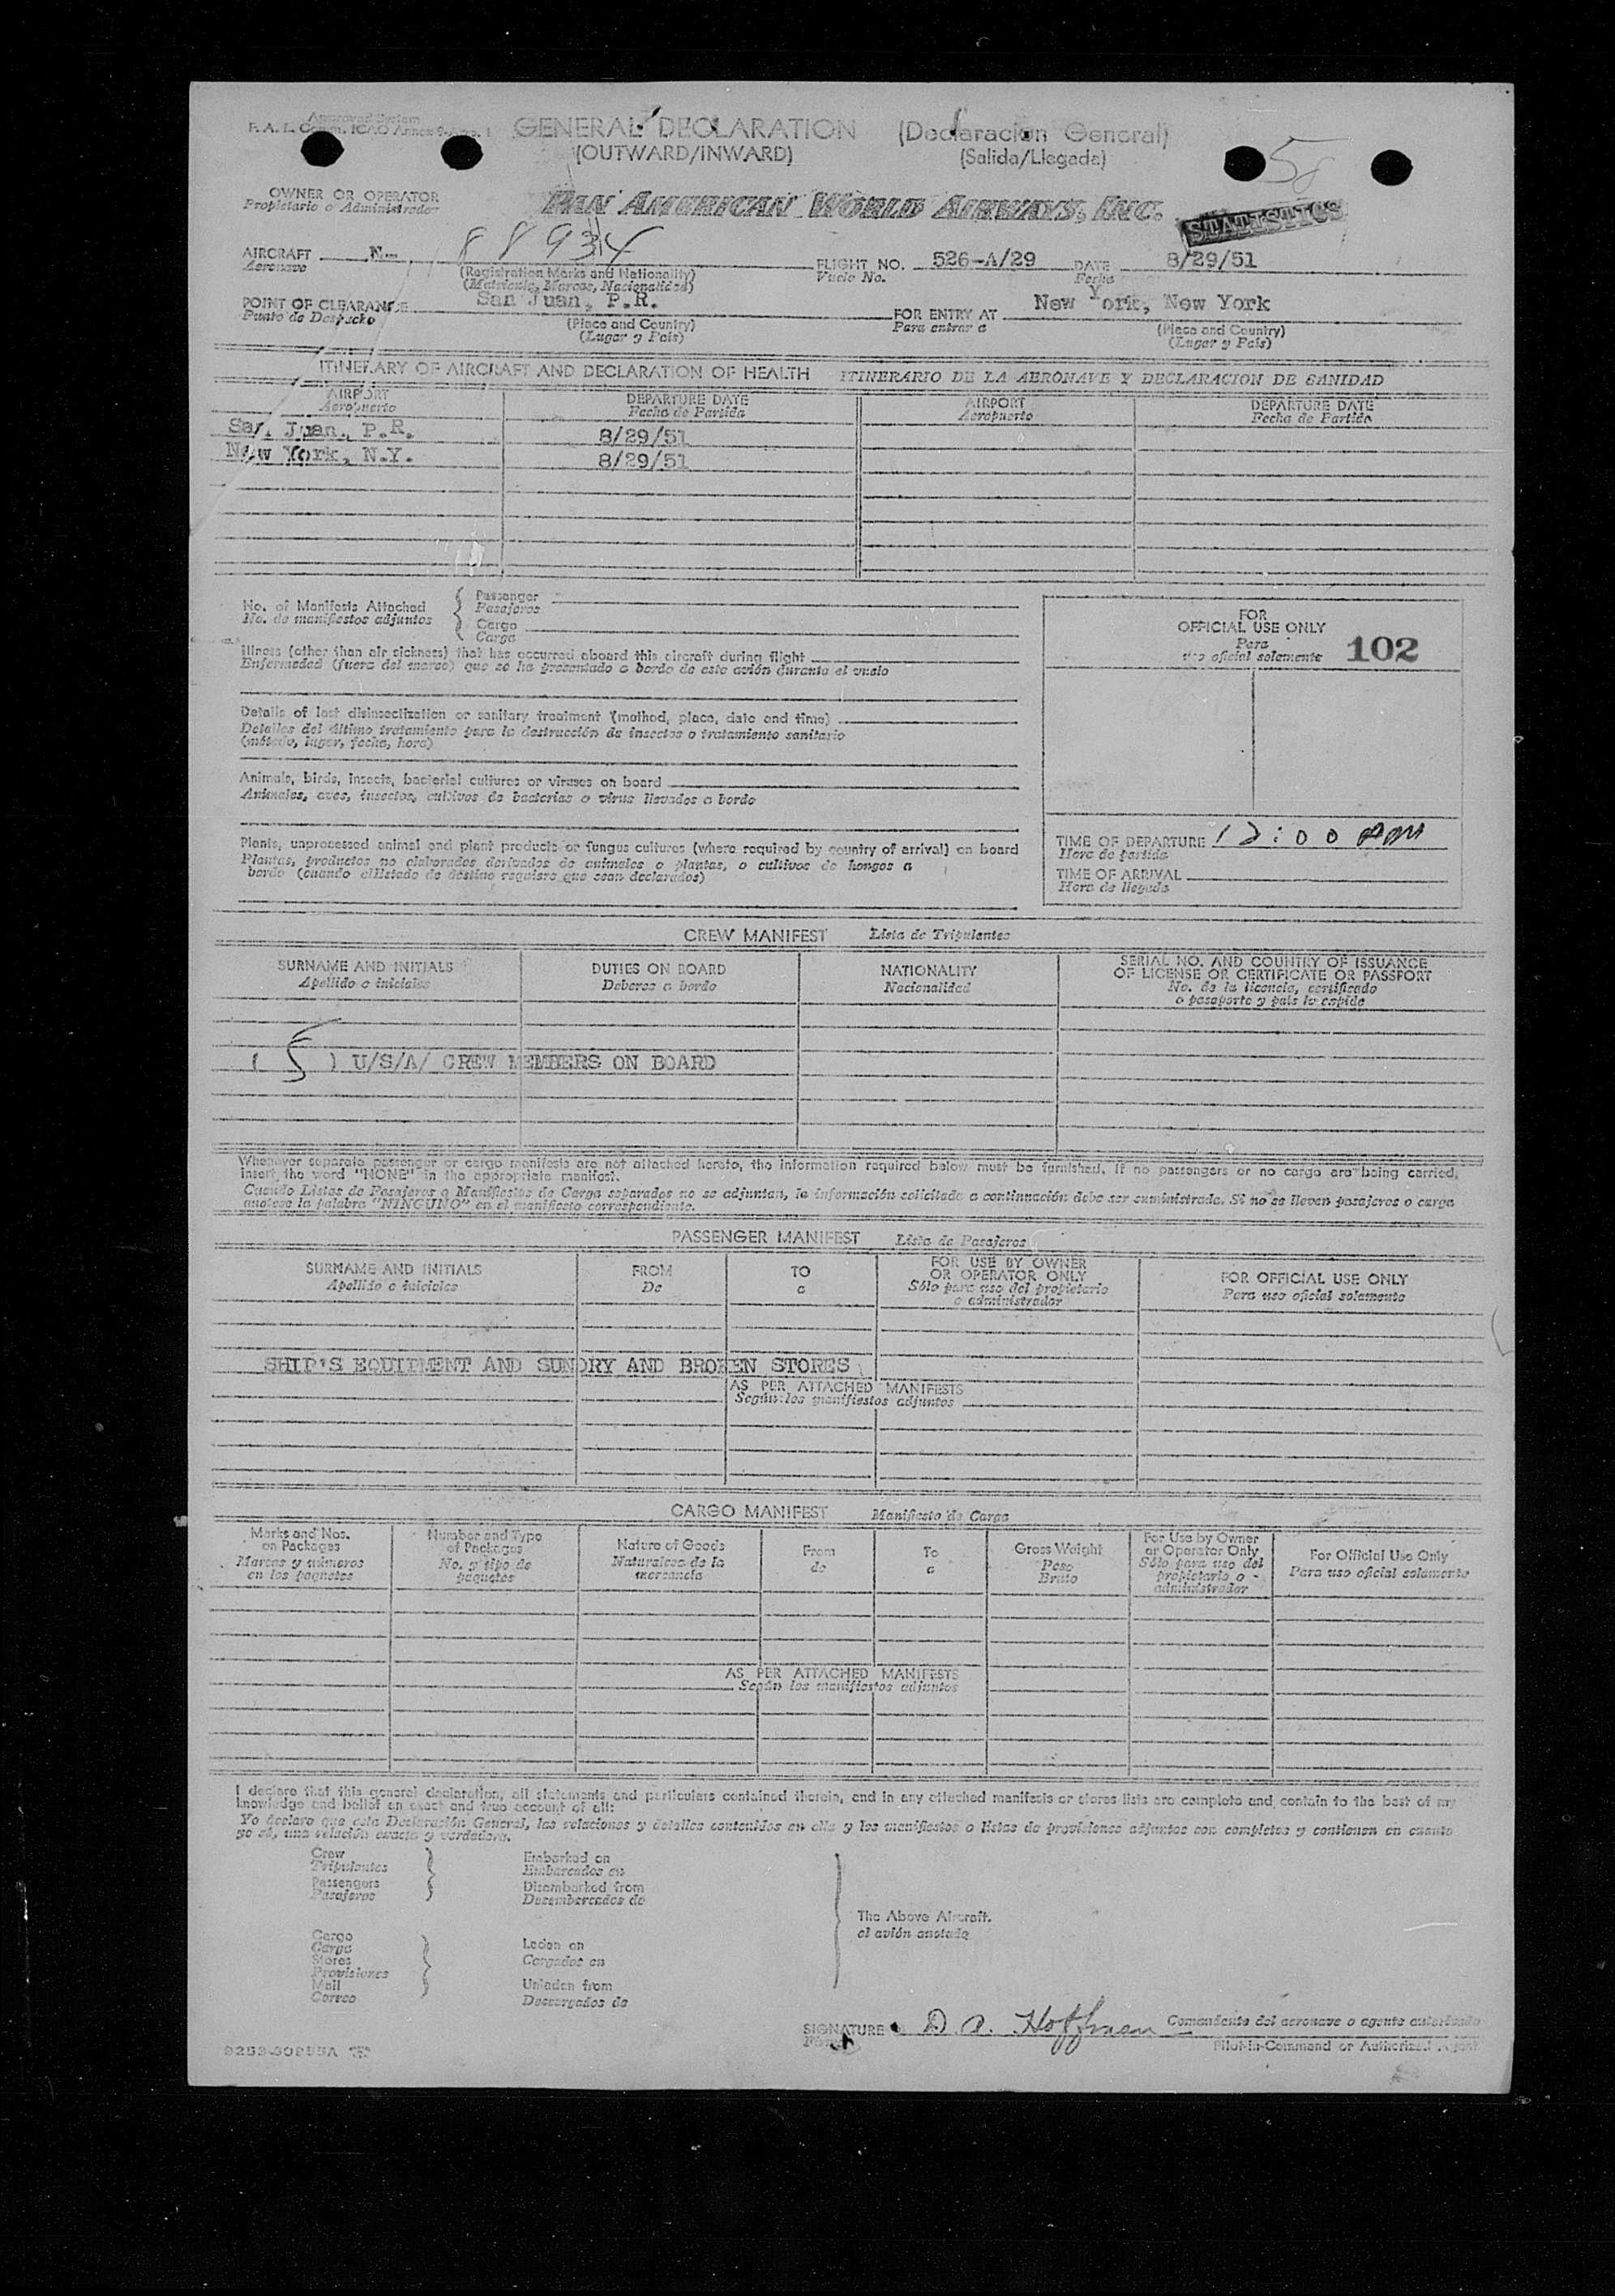 Approved System
F. A. L. Comm. ICAO Annex 9-App. 1
GENERAL DECLARATION (Declaracion General)
(OUTWARD/INWARD) (Salida/Llegada)
58
OWNER OR OPERATOR
Propietario o Administrador
PAN AMERICAN WORLD AIRWAYS, INC.
STATISTICS
AIRCRAFT N- 88934 FLIGHT NO. 526-A/29 DATE 8/29/51
Aeronave (Registration Marks and Nationality) Vuelo No. Fecha
(Matricula, Marcas, Nacionalidad)
POINT OF CLEARANCE San Juan, P.R. FOR ENTRY AT New York, New York
Punto de Despacho (Place and Country) Para entrar a (Place and Country)
(Lugar y País) (Lugar y País)
ITINERARY OF AIRCRAFT AND DECLARATION OF HEALTH ITINERARIO DE LA AERONAVE Y DECLARACION DE SANIDAD
AIRPORT DEPARTURE DATE AIRPORT DEPARTURE DATE
Aeropuerto Fecha de Partida Aeropuerto Fecha de Partida
San Juan, P.R. 8/29/51
New York, N.Y. 8/29/51
No. of Manifests Attached Passenger
No. de manifiestos adjuntos Pasajeros
Cargo
Carga
Illness (other than air sickness) that has occurred aboard this aircraft during flight
Enfermedad (fuera del mareo) que se ha presentado a bordo de este avión durante el vuelo
Details of last disinsectization or sanitary treatment (method, place, date and time)
Detalles del último tratamiento para la destrucción de insectos o tratamiento sanitario
(método, lugar, fecha, hora)
Animals, birds, insects, bacterial cultures or viruses on board
Animales, aves, insectos, cultivos de bacterias o virus llevados a bordo
Plants, unprocessed animal and plant products or fungus cultures (where required by country of arrival) on board
Plantas, productos no elaborados derivados de animales o plantas, o cultivos de hongos a
bordo (cuando el Estado de destino requiere que sean declarados)
FOR
OFFICIAL USE ONLY
Para
uso oficial solamente 102
TIME OF DEPARTURE 12:00 AM
Hora de partida
TIME OF ARRIVAL
Hora de llegada
CREW MANIFEST Lista de Tripulantes
SURNAME AND INITIALS DUTIES ON BOARD NATIONALITY SERIAL NO. AND COUNTRY OF ISSUANCE
OF LICENSE OR CERTIFICATE OR PASSPORT
Apellido e iniciales Deberes a bordo Nacionalidad No. de la licencia, certificado
o pasaporte y país lo expide
( 5 ) U/S/A/ CREW MEMBERS ON BOARD
Whenever separate passenger or cargo manifests are not attached hereto, the information required below must be furnished. If no passengers or no cargo are being carried,
insert the word "NONE" in the appropriate manifest.
Cuando Listas de Pasajeros o Manifiestos de Carga separados no se adjuntan, la información solicitada a continuación debe ser suministrada. Si no se llevan pasajeros o carga
anótese la palabra "NINGUNO" en el manifiesto correspondiente.
PASSENGER MANIFEST Lista de Pasajeros
SURNAME AND INITIALS FROM TO FOR USE BY OWNER
OR OPERATOR ONLY FOR OFFICIAL USE ONLY
Apellido e iniciales De a Sólo para uso del propietario
o administrador Para uso oficial solamente
SHIP'S EQUIPMENT AND SUNDRY AND BROKEN STORES
AS PER ATTACHED MANIFESTS
Según los manifiestos adjuntos
CARGO MANIFEST Manifiesto de Carga
Marks and Nos.
on Packages
Marcas y números
en los paquetes
Number and Type
of Packages
No. y tipo de
paquetes
Nature of Goods
Naturaleza de la
mercancía
From
de
To
a
Gross Weight
Peso
Bruto
For Use by Owner
or Operator Only
Sólo para uso del
propietario o
administrador
For Official Use Only
Para uso oficial solamente
AS PER ATTACHED MANIFESTS
Según los manifiestos adjuntos
I declare that this general declaration, all statements and particulars contained therein, and in any attached manifests or stores lists are complete and contain to the best of my
knowledge and belief an exact and true account of all:
Yo declaro que esta Declaración General, las relaciones y detalles contenidos en ella y los manifiestos o listas de provisiones adjuntos son completos y contienen en cuanto
yo sé, una relación exacta y verdadera.
Crew
Tripulantes
Passengers
Pasajeros
Embarked on
Embarcados en
Disembarked from
Desembarcados de
Cargo
Carga
Stores
Provisiones
Mail
Correo
Laden on
Cargados en
Unladen from
Descargados de
The Above Aircraft.
el avión anotado
SIGNATURE D. A. Hoffman Comandante del aeronave o agente autorizado
Firma Pilot-in-Command or Authorized Agent